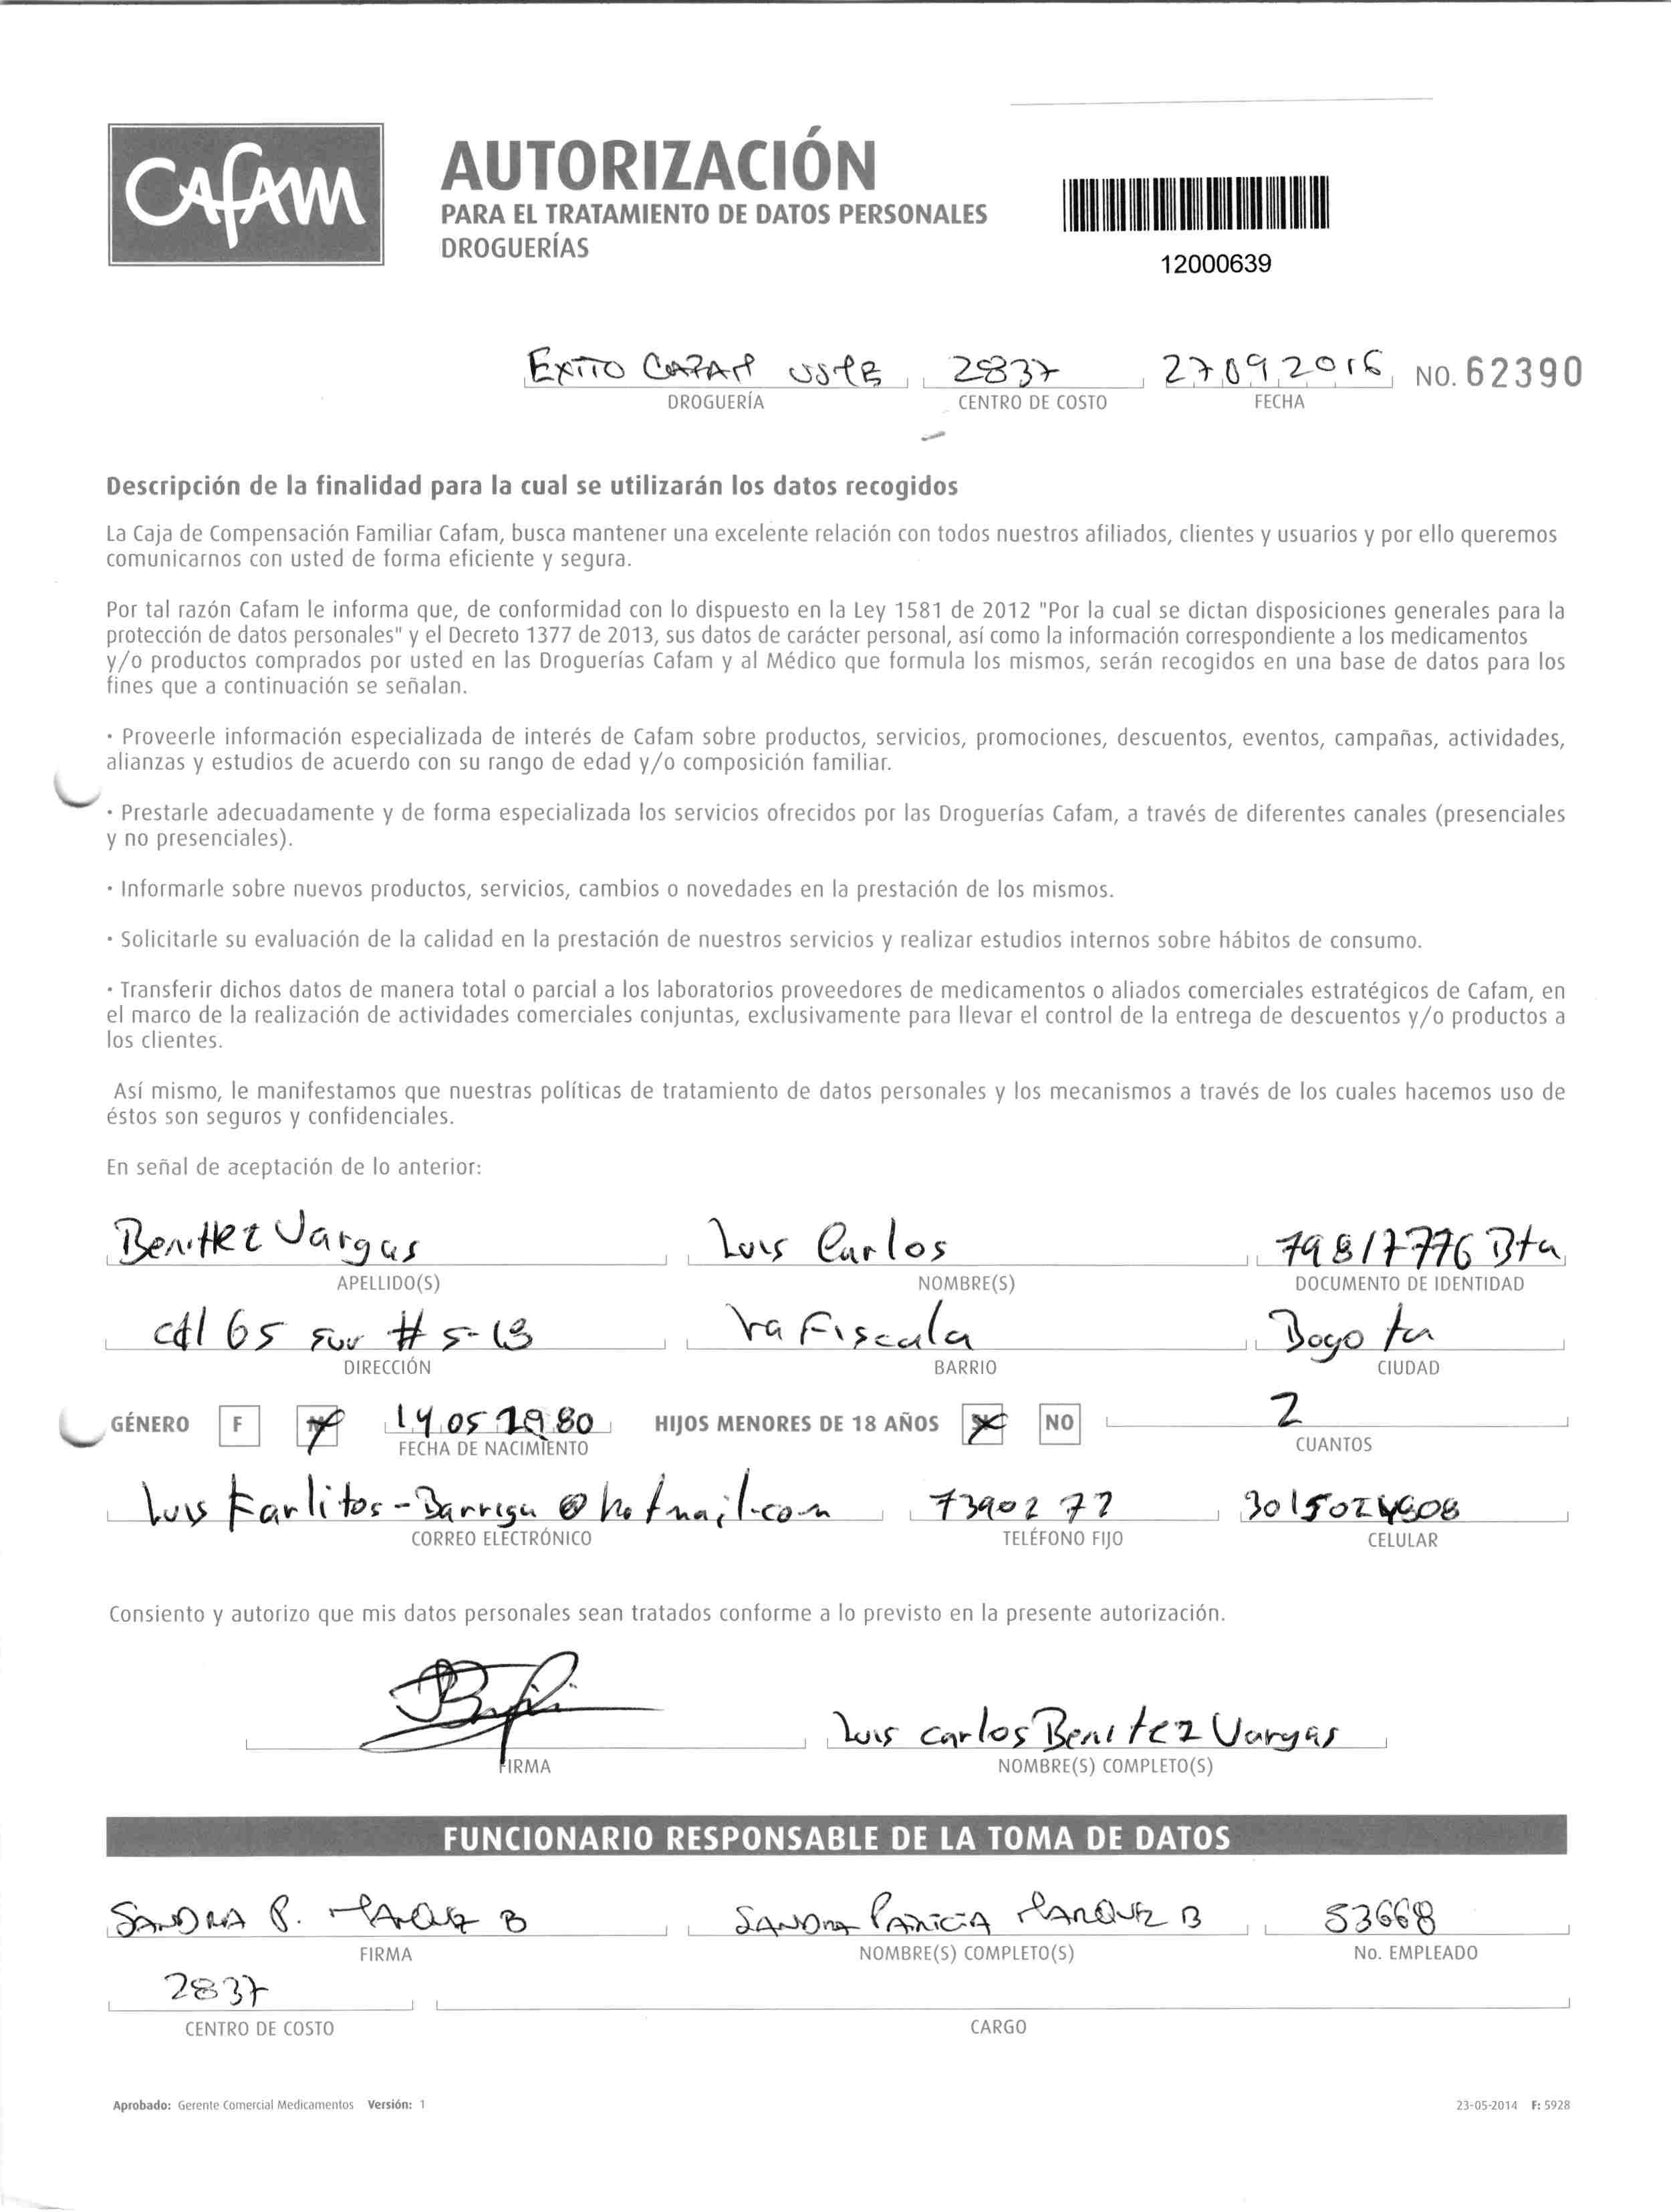 CAFAM
AUTORIZACIÓN
PARA EL TRATAMIENTO DE DATOS PERSONALES
DROGUERÍAS
12000639
EXITO CAFAM USME 2837 27 09 2016 NO. 62390
DROGUERÍA CENTRO DE COSTO FECHA
Descripción de la finalidad para la cual se utilizarán los datos recogidos
La Caja de Compensación Familiar Cafam, busca mantener una excelente relación con todos nuestros afiliados, clientes y usuarios y por ello queremos
comunicarnos con usted de forma eficiente y segura.
Por tal razón Cafam le informa que, de conformidad con lo dispuesto en la Ley 1581 de 2012 "Por la cual se dictan disposiciones generales para la
protección de datos personales" y el Decreto 1377 de 2013, sus datos de carácter personal, así como la información correspondiente a los medicamentos
y/o productos comprados por usted en las Droguerías Cafam y al Médico que formula los mismos, serán recogidos en una base de datos para los
fines que a continuación se señalan.
· Proveerle información especializada de interés de Cafam sobre productos, servicios, promociones, descuentos, eventos, campañas, actividades,
alianzas y estudios de acuerdo con su rango de edad y/o composición familiar.
· Prestarle adecuadamente y de forma especializada los servicios ofrecidos por las Droguerías Cafam, a través de diferentes canales (presenciales
y no presenciales).
· Informarle sobre nuevos productos, servicios, cambios o novedades en la prestación de los mismos.
· Solicitarle su evaluación de la calidad en la prestación de nuestros servicios y realizar estudios internos sobre hábitos de consumo.
· Transferir dichos datos de manera total o parcial a los laboratorios proveedores de medicamentos o aliados comerciales estratégicos de Cafam, en
el marco de la realización de actividades comerciales conjuntas, exclusivamente para llevar el control de la entrega de descuentos y/o productos a
los clientes.
Así mismo, le manifestamos que nuestras políticas de tratamiento de datos personales y los mecanismos a través de los cuales hacemos uso de
éstos son seguros y confidenciales.
En señal de aceptación de lo anterior:
Benitez Vargas Luis Carlos 79817776 Bta
APELLIDO(S) NOMBRE(S) DOCUMENTO DE IDENTIDAD
cll 65 sur # 5-13 La Fiscala Bogota
DIRECCIÓN BARRIO CIUDAD
GÉNERO F M 14 05 1980 HIJOS MENORES DE 18 AÑOS SI NO 2
FECHA DE NACIMIENTO CUANTOS
Luis Karlitos-Barriga@hotmail.com 7390277
CORREO ELECTRÓNICO TELÉFONO FIJO CELULAR
Consiento y autorizo que mis datos personales sean tratados conforme a lo previsto en la presente autorización.
Luis carlos Benitez Vargas
FIRMA NOMBRE(S) COMPLETO(S)
FUNCIONARIO RESPONSABLE DE LA TOMA DE DATOS
SANDRA P. MARQUEZ B SANDRA PATRICIA MARQUEZ B 53668
FIRMA NOMBRE(S) COMPLETO(S) No. EMPLEADO
2837
CENTRO DE COSTO CARGO
Aprobado: Gerente Comercial Medicamentos Versión: 1 23-05-2014 F: 5928